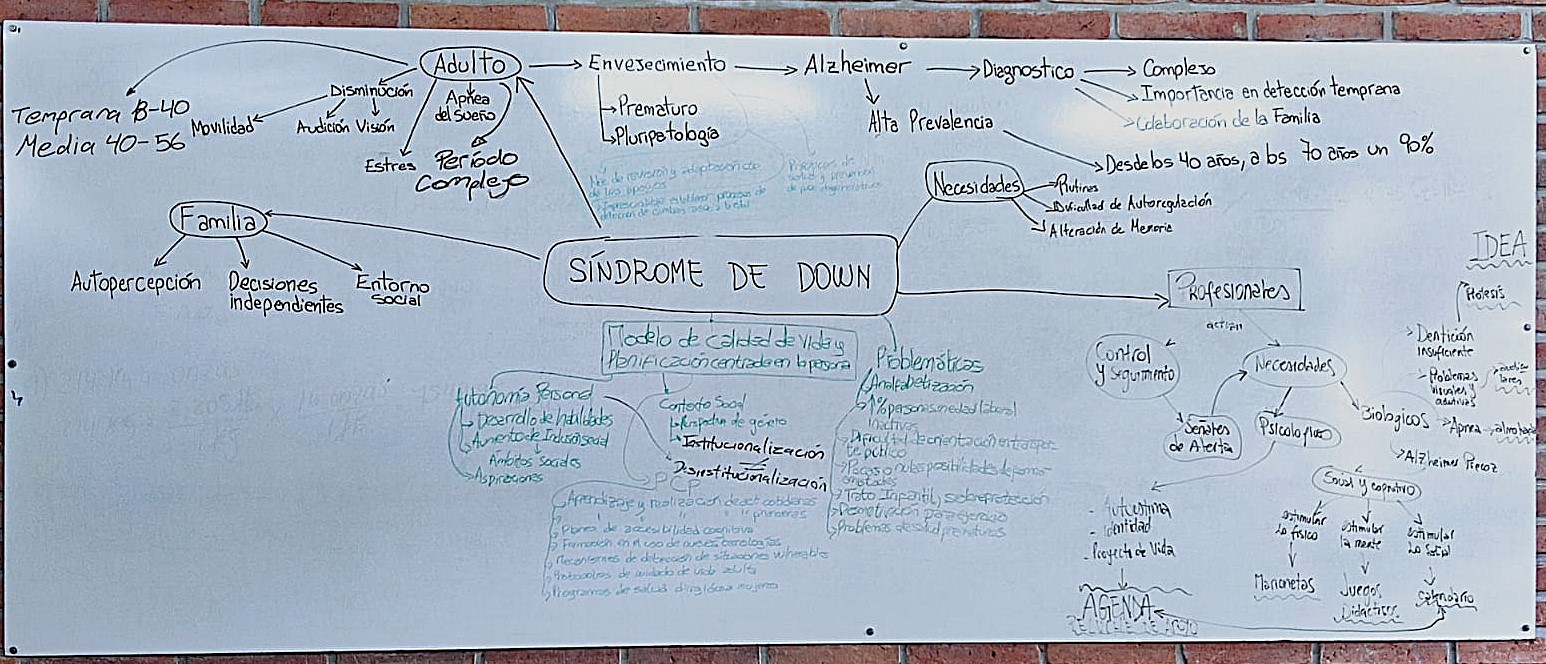 Adulto
Temprana 18-40
Media 40-56
Disminución
Movilidad
Audición
Visión
Apnea
del sueño
Estres
Período
Complejo
Envesecimiento
Prematuro
Pluripatología
Alzheimer
Alta Prevalencia
Desde los 40 años, a los 70 años un 90%
Diagnostico
Complejo
Importancia en detección temprana
Colaboración de la Familia
Necesidades
Rutines
Dificultad de Autoregulación
Alteración de Memoria
Familia
Autopercepción
Decisiones
independientes
Entorno
social
SÍNDROME DE DOWN
Modelo de calidad de vida y
Planificación centrada en la persona
Autonomía Personal
Desarrollo de habilidades
Aumento de Inclusión social
Ámbitos Sociales
Aspiraciones
Contexto Social
de género
Institucionalización
Desinstitucionalización
PCP
Aprendizaje y realización de act cotidianas
Planes de accesibilidad cognitiva
Formación en el uso de nuevas tecnologías
Mecanismos de detección de situaciones vulnerables
Protocolos de cuidado de vida adulta
Programas de salud dirigidos a mujeres
Problemáticas
Analfabetización
1% personas in edad laboral
Inactivos
Dificultad de orientación en transpor-
te público
Pocas o nulas posibilidades de formar
amistades
Trato Infantil, sobreprotección
Desmotivación para ejercicio
Problemas de salud prematuros
Profesionales
Control
y seguimiento
Señales
de Alerta
Necesidades
Psicologico
Biologicos
- Autoestima
- Identidad
- Proyecto de Vida
AGENDA
Social y cognitivo
estimular
lo físico
Marionetas
estimular
la mente
Juegos
Didacticos
estimular
lo Social
Calendario
IDEA
Protesis
Dentición
Insuficiente
Problemas
visuales y
auditivos
Apnea
almohada
Alzheimer Precoz